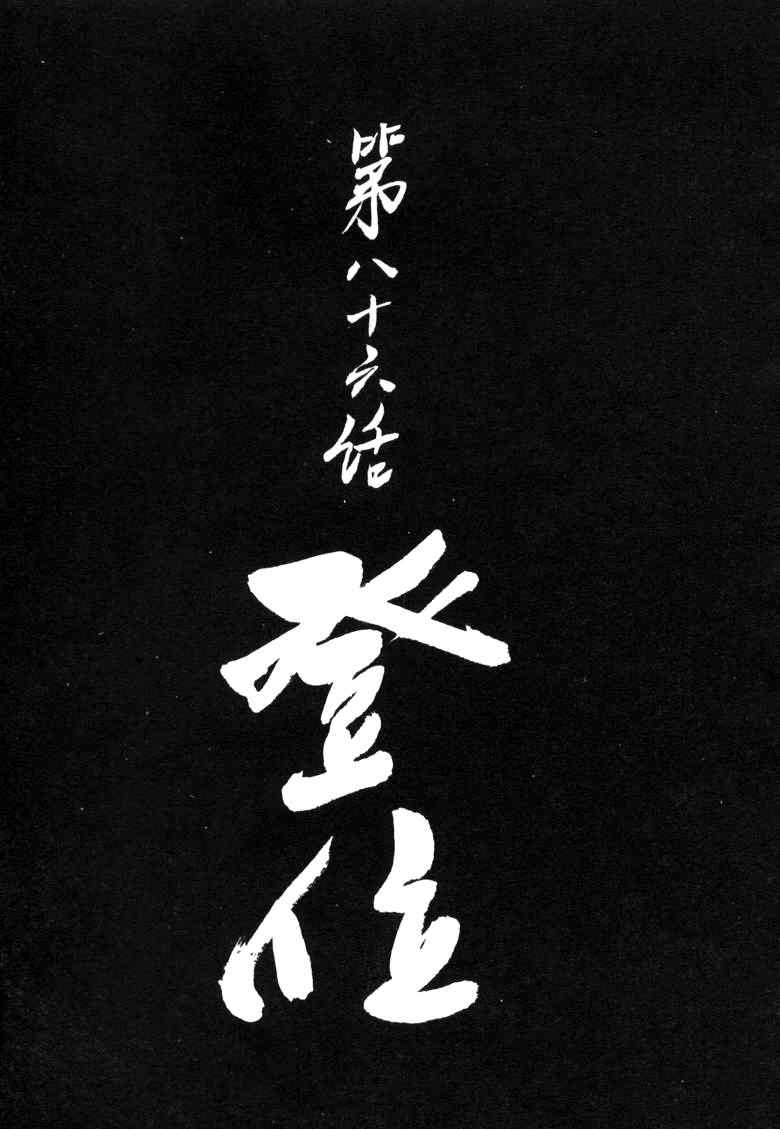 第八十六话
登位